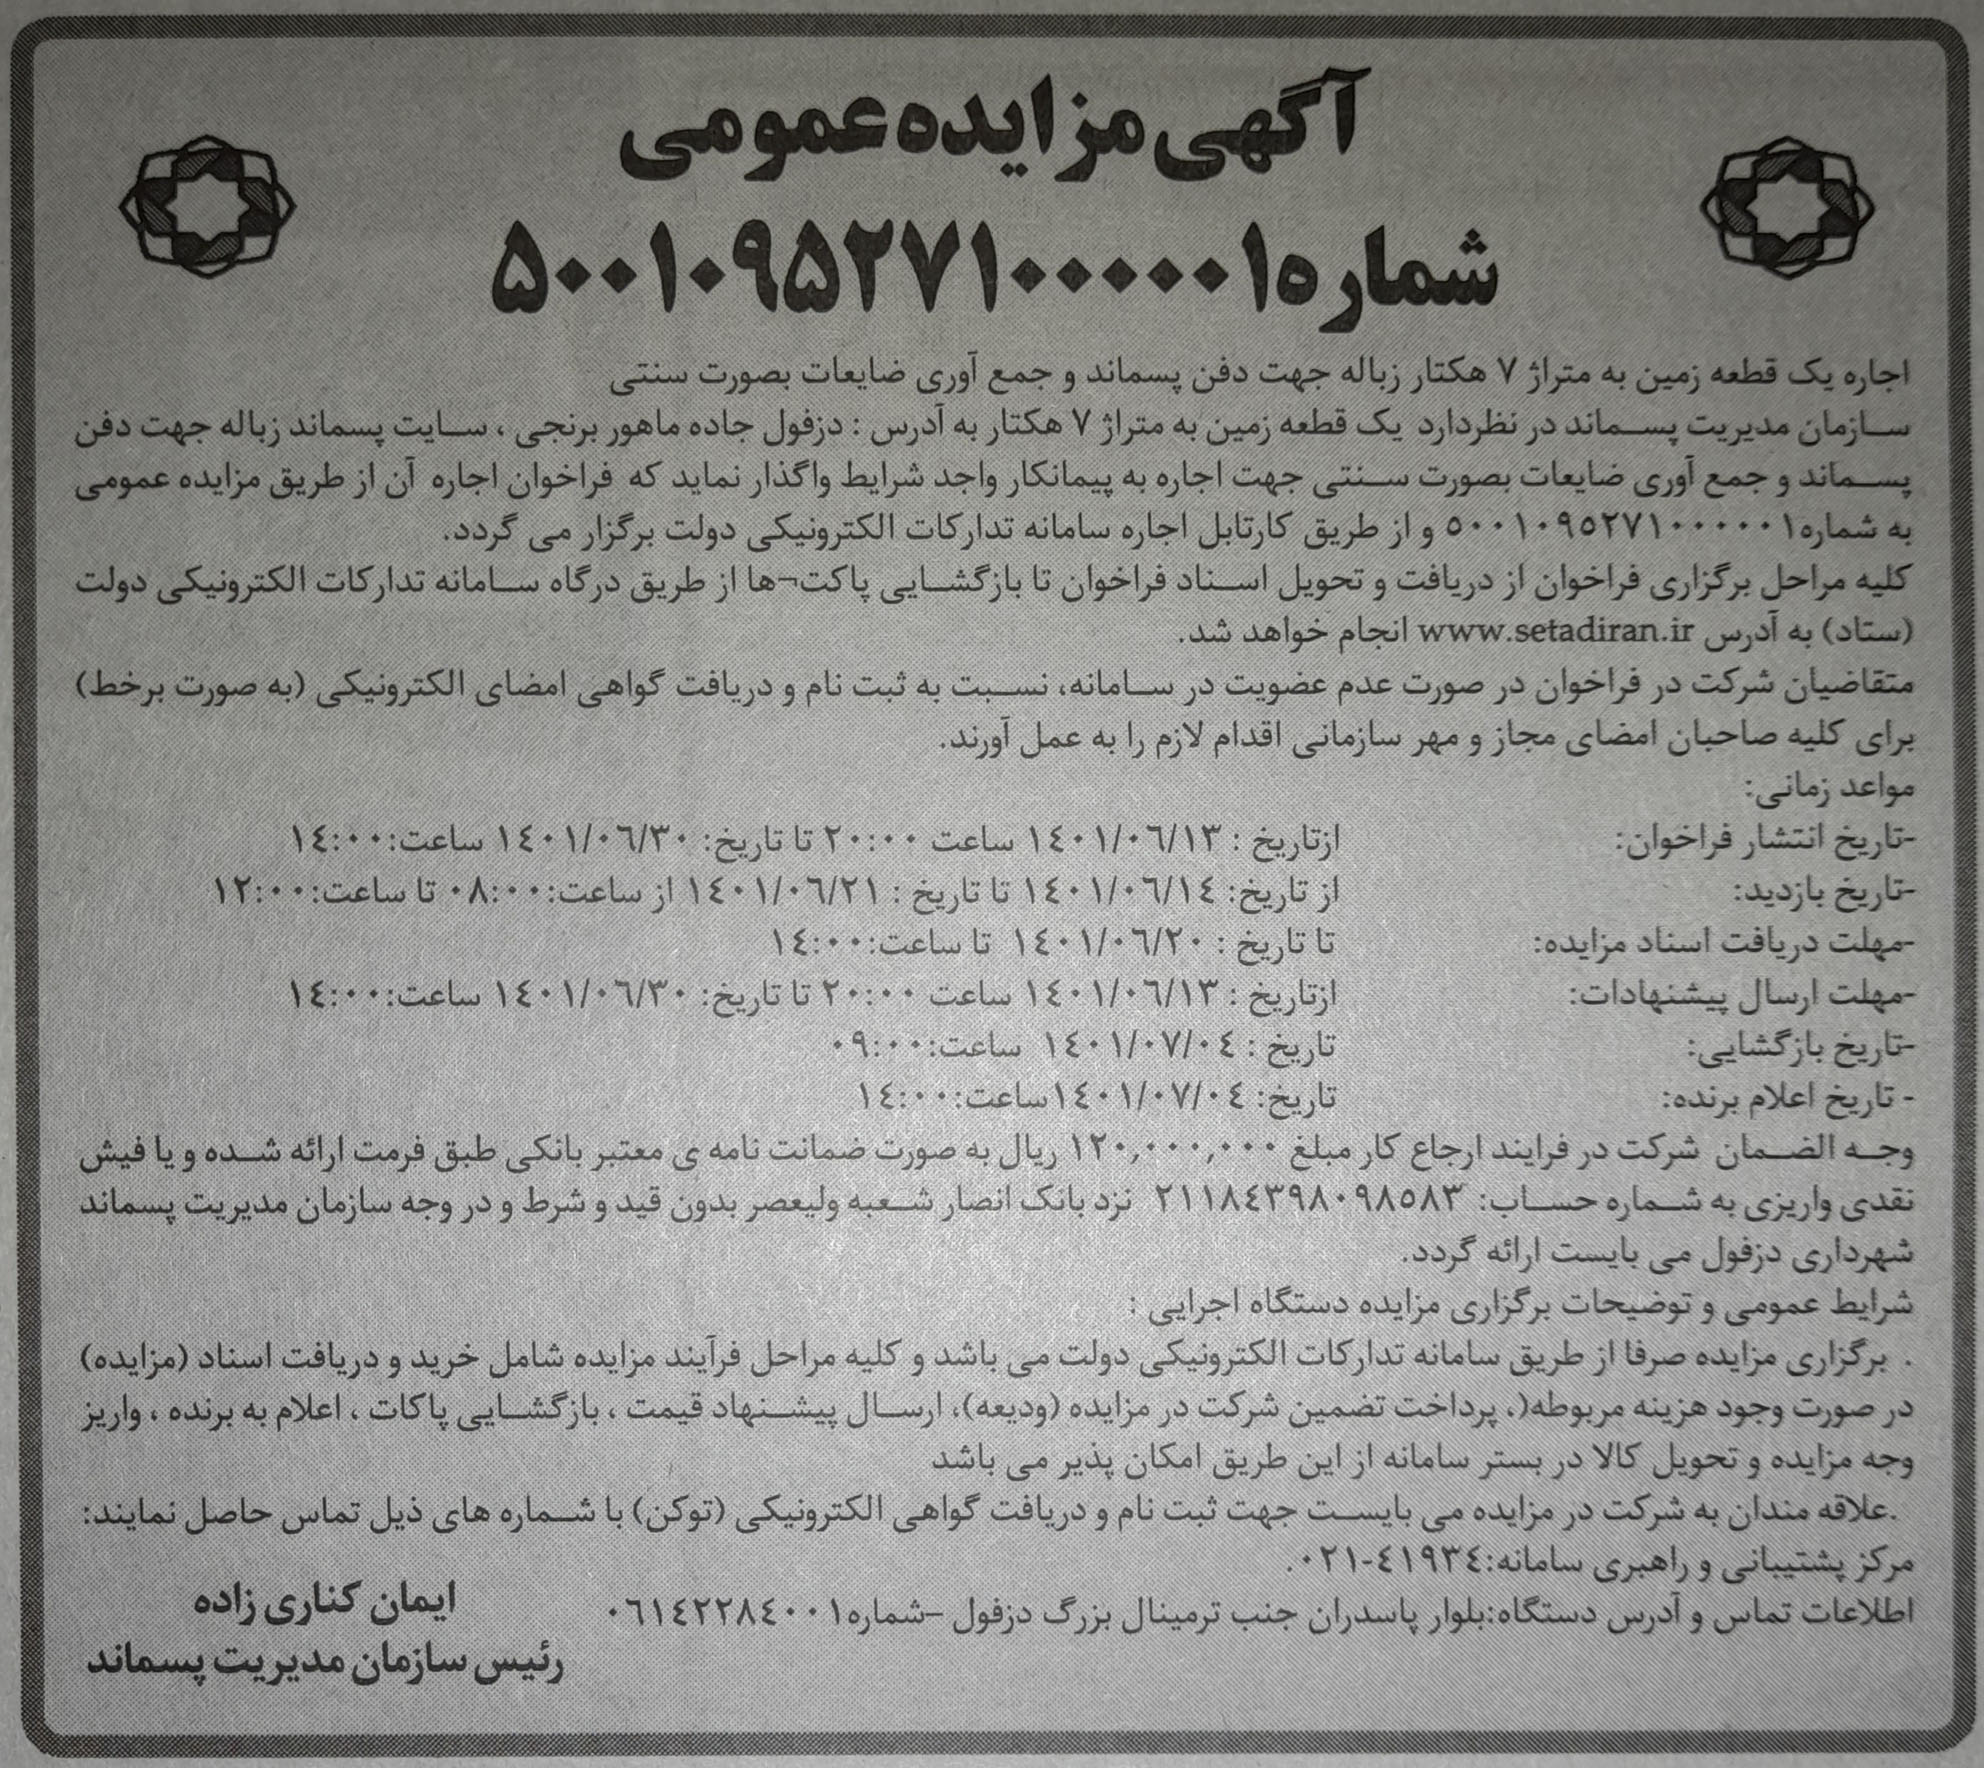 آگهی مزایده عمومی
شماره ۵۰۰۱۰۹۵۲۷۱۰۰۰۰۰۱
اجاره یک قطعه زمین به متراژ ۷ هکتار زباله جهت دفن پسماند و جمع آوری ضایعات بصورت سنتی
سازمان مدیریت پسماند در نظردارد یک قطعه زمین به متراژ ۷ هکتار به آدرس : دزفول جاده ماهور برنجی ، سایت پسماند زباله جهت دفن
پسماند و جمع آوری ضایعات بصورت سنتی جهت اجاره به پیمانکار واجد شرایط واگذار نماید که فراخوان اجاره آن از طریق مزایده عمومی
به شماره ۵۰۰۱۰۹۵۲۷۱۰۰۰۰۰۱ و از طریق کارتابل اجاره سامانه تدارکات الکترونیکی دولت برگزار می گردد.
کلیه مراحل برگزاری فراخوان از دریافت و تحویل اسناد فراخوان تا بازگشایی پاکت¬ها از طریق درگاه سامانه تدارکات الکترونیکی دولت
(ستاد) به آدرس www.setadiran.ir انجام خواهد شد.
متقاضیان شرکت در فراخوان در صورت عدم عضویت در سامانه، نسبت به ثبت نام و دریافت گواهی امضای الکترونیکی (به صورت برخط)
برای کلیه صاحبان امضای مجاز و مهر سازمانی اقدام لازم را به عمل آورند.
مواعد زمانی:
-تاریخ انتشار فراخوان: ازتاریخ : ۱٤۰۱/۰٦/۱۳ ساعت ۲۰:۰۰ تا تاریخ: ۱٤۰۱/۰٦/۳۰ ساعت:۱٤:۰۰
-تاریخ بازدید: از تاریخ: ۱٤۰۱/۰٦/۱٤ تا تاریخ : ۱٤۰۱/۰٦/۲۱ از ساعت:۰۸:۰۰ تا ساعت:۱۲:۰۰
-مهلت دریافت اسناد مزایده: تا تاریخ : ۱٤۰۱/۰٦/۲۰ تا ساعت:۱٤:۰۰
-مهلت ارسال پیشنهادات: ازتاریخ : ۱٤۰۱/۰٦/۱۳ ساعت ۲۰:۰۰ تا تاریخ: ۱٤۰۱/۰٦/۳۰ ساعت:۱٤:۰۰
-تاریخ بازگشایی: تاریخ : ۱٤۰۱/۰۷/۰٤ ساعت:۰۹:۰۰
- تاریخ اعلام برنده: تاریخ: ۱٤۰۱/۰۷/۰٤ساعت:۱٤:۰۰
وجه الضمان شرکت در فرایند ارجاع کار مبلغ ۱۲۰,۰۰۰,۰۰۰ ریال به صورت ضمانت نامه ی معتبر بانکی طبق فرمت ارائه شده و یا فیش
نقدی واریزی به شماره حساب: ۲۱۱۸٤۳۹۸۰۹۸۵۸۳ نزد بانک انصار شعبه ولیعصر بدون قید و شرط و در وجه سازمان مدیریت پسماند
شهرداری دزفول می بایست ارائه گردد.
شرایط عمومی و توضیحات برگزاری مزایده دستگاه اجرایی :
. برگزاری مزایده صرفا از طریق سامانه تدارکات الکترونیکی دولت می باشد و کلیه مراحل فرآیند مزایده شامل خرید و دریافت اسناد (مزایده)
در صورت وجود هزینه مربوطه(، پرداخت تضمین شرکت در مزایده (ودیعه)، ارسال پیشنهاد قیمت ، بازگشایی پاکات ، اعلام به برنده ، واریز
وجه مزایده و تحویل کالا در بستر سامانه از این طریق امکان پذیر می باشد
.علاقه مندان به شرکت در مزایده می بایست جهت ثبت نام و دریافت گواهی الکترونیکی (توکن) با شماره های ذیل تماس حاصل نمایند:
مرکز پشتیبانی و راهبری سامانه:٤۱۹۳٤-۰۲۱.
اطلاعات تماس و آدرس دستگاه:بلوار پاسدران جنب ترمینال بزرگ دزفول –شماره۰٦۱٤۲۲۸٤۰۰۱
ایمان کناری زاده
رئیس سازمان مدیریت پسماند